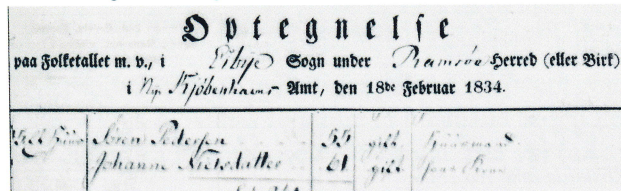 Optegnelse
paa Folketallet m. v., i Eiby Sogn under Ramsøe Herred (eller Birk)
i Kjøbenhavns Amt, den 18de Februar 1834.
Huus Søren Pedersen 55 gift Huusmand
Johanne Nielsdatter 61 gift hans Kone